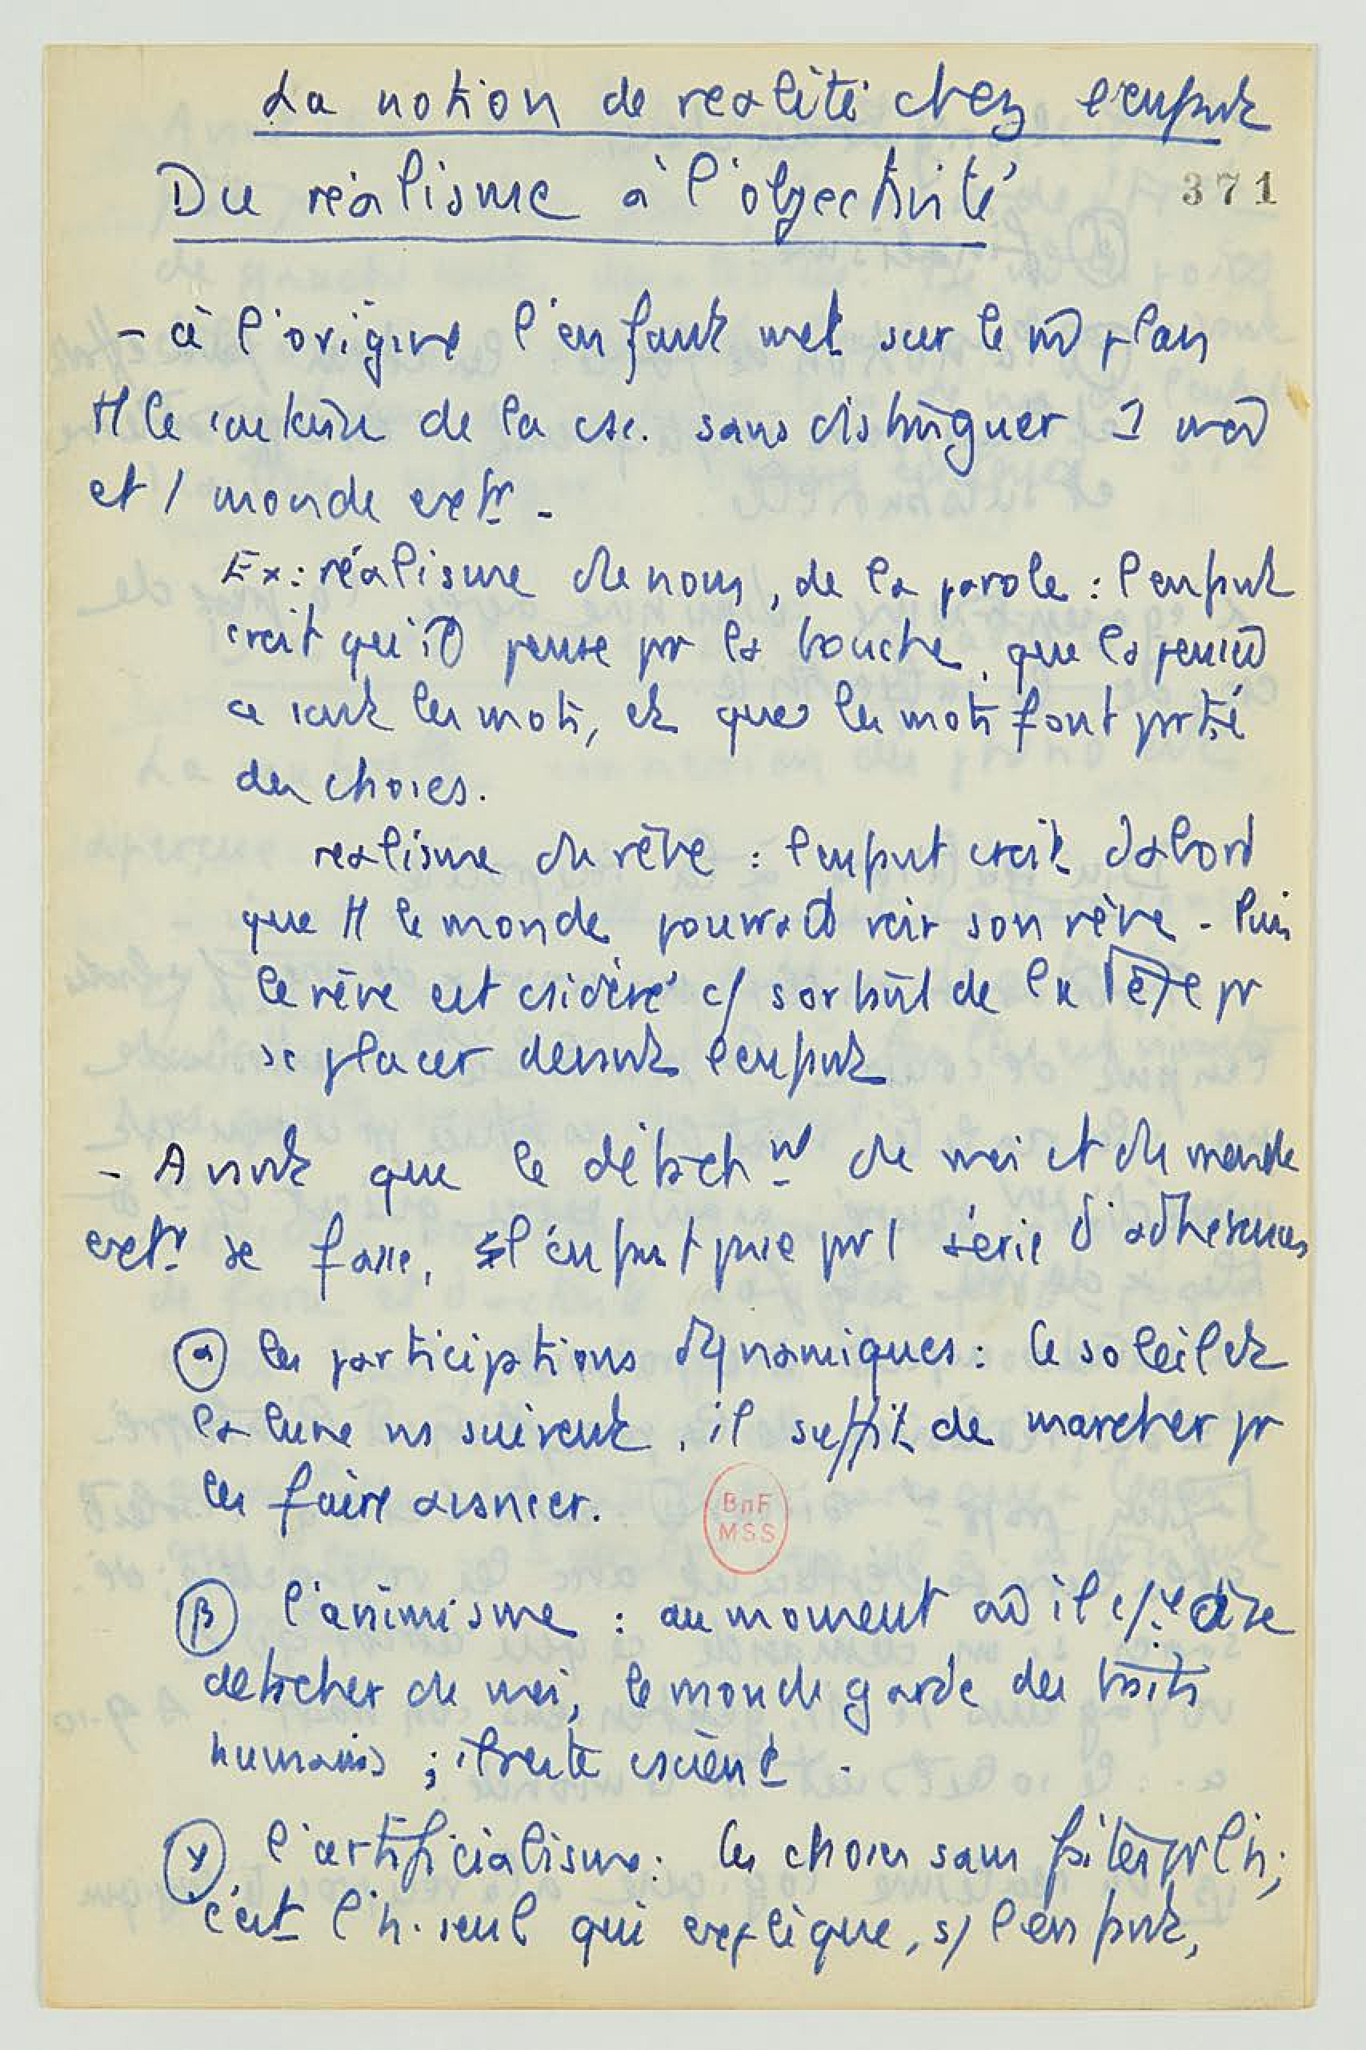 La notion de realité chez l'enfant
Du réalisme à l'objectivité
371
- à l'origine l'enfant met sur le m̄ plan
tt le contenu de la csc. sans distinguer 1 moi
et 1 monde extr -
Ex : réalisme du nom, de la parole : l'enfant
croit qu'il pense pr la bouche, que la pensée
ce sont les mots, et que les mots font partie
des choses.
realisme du rêve : l'enfant croit d'abord
que tt le monde pourrait voir son rêve - Puis
le rêve est csidéré c/ sortant de la tête pr
se placer devant l'enfant
- Avant que le détachmt du moi et du monde
extr se fasse, l'enfant passe pr 1 série d'adhérences
α les participations dynamiques : le soleil et
la lune ns suivent, il suffit de marcher pr
les faire avancer.
BnF
MSS
β l'animisme : au moment où il se
detacher du moi, le monde garde des traits
humains ; il reste cscient .
γ l'artificialisme : les choses sont faites pr l'h ;
c'est l'h. seul qui explique, s/ l'enfant,